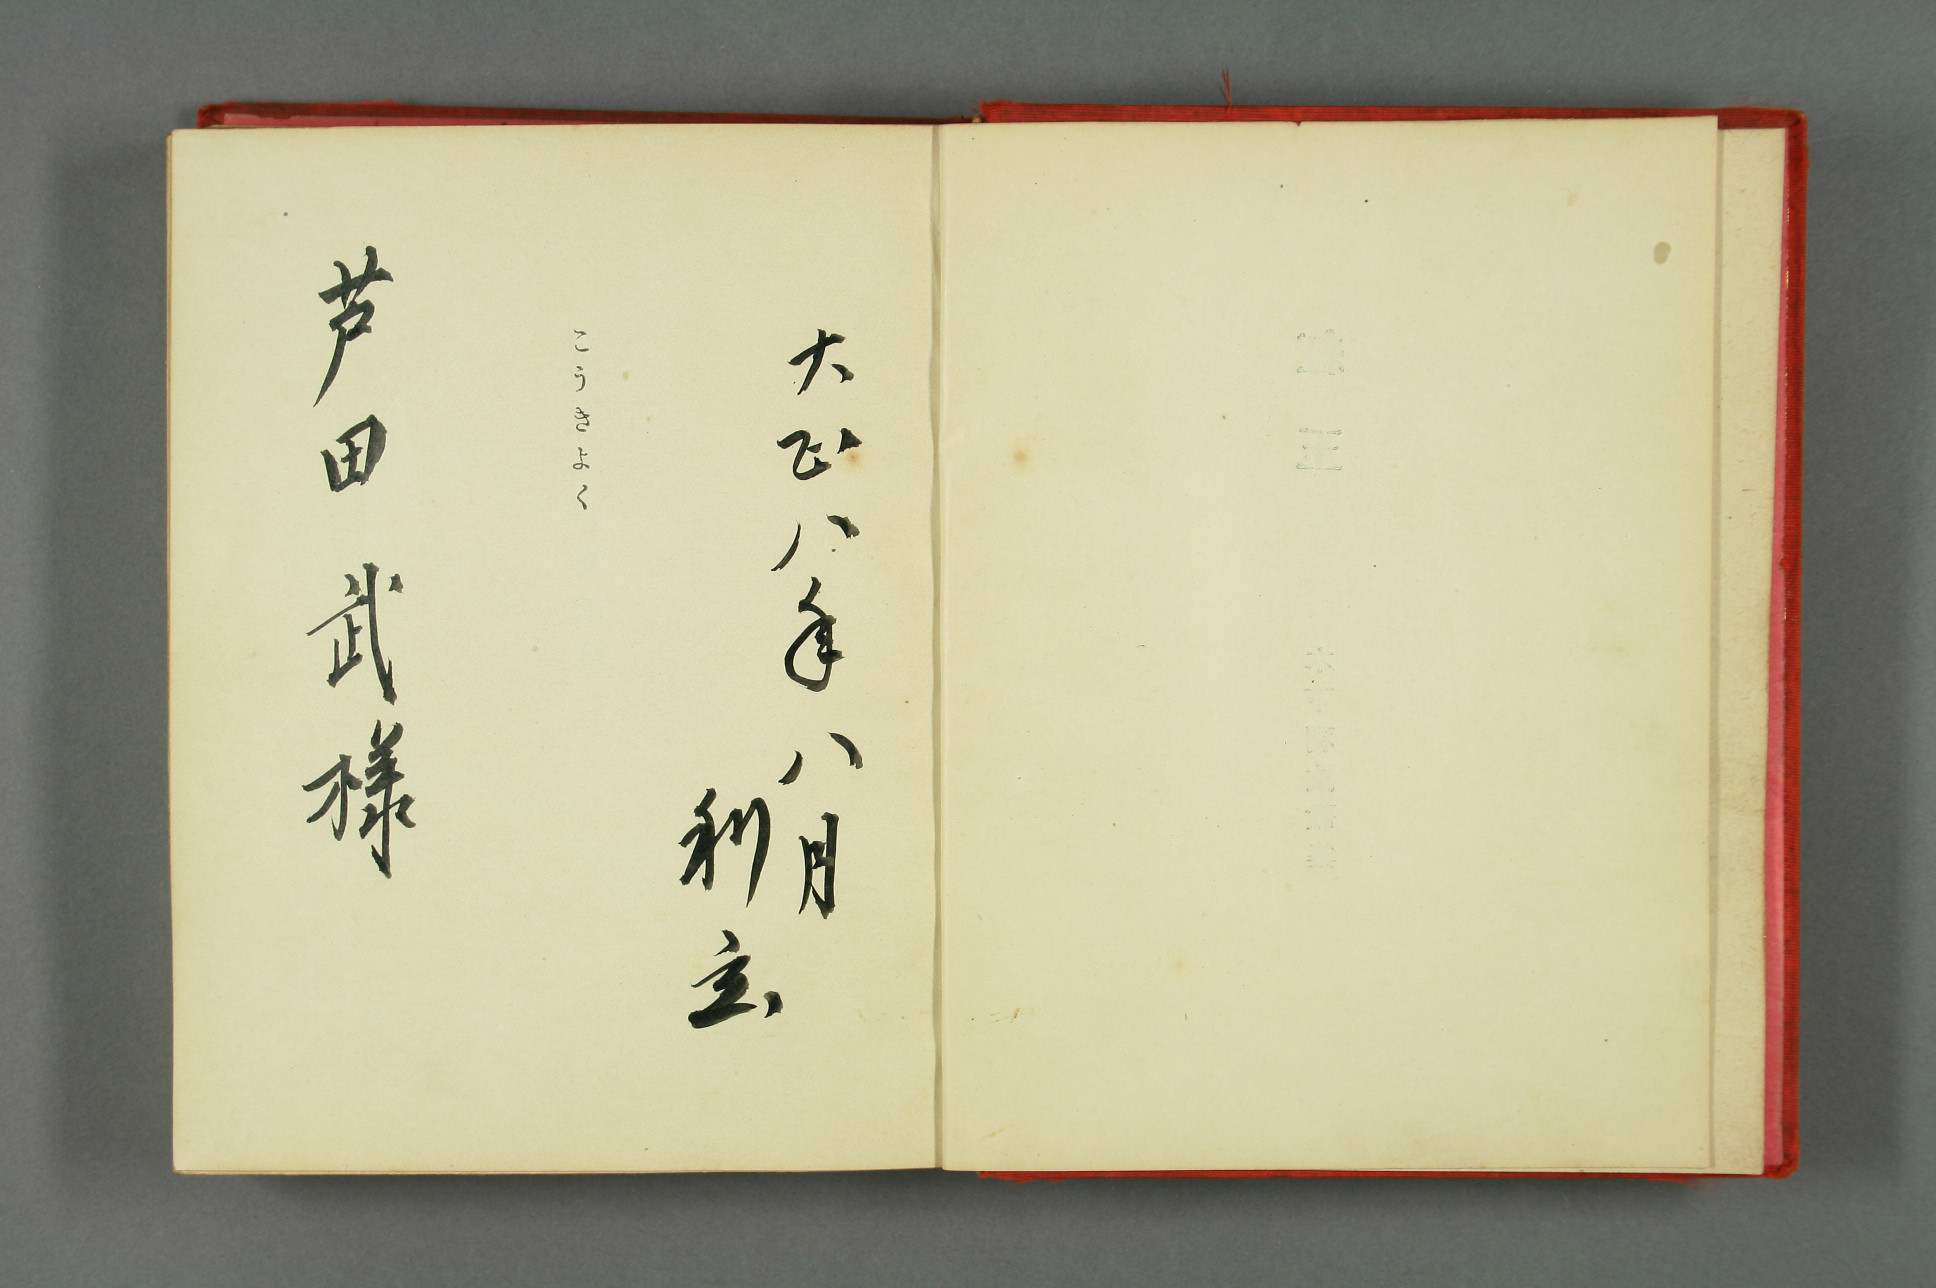 大正八年八月
利玄
こうきよく
芦田武様